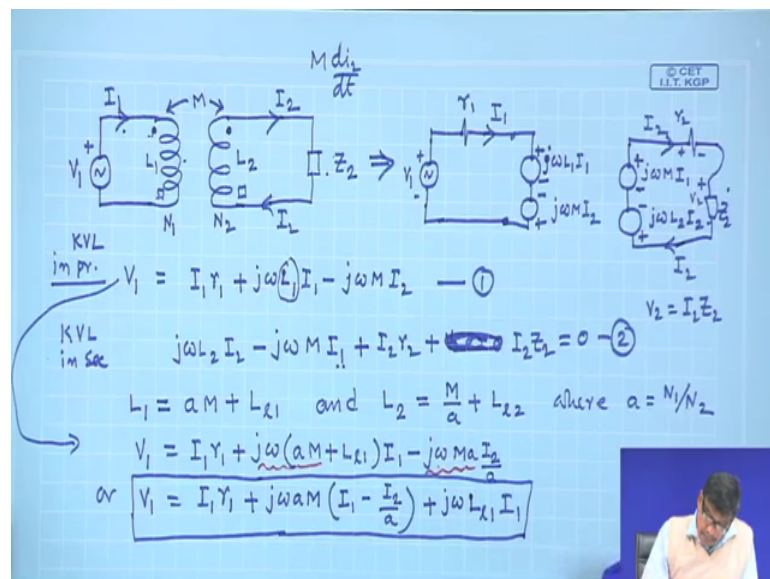 M di₂/dt
© CET
I.I.T. KGP
I₁ M I₂ r₁ I₁ I₂ r₂
+ V₁ L₁ L₂ Z₂ ⇒ + V₁ - + jωL₁I₁ - + jωMI₁ - + - + V₂ Z₂
- jωMI₂ + - jωL₂I₂ +
N₁ N₂ I₂ I₂
KVL in pr. V₁ = I₁r₁ + jωL₁I₁ - jωMI₂ — ①
V₂ = I₂Z₂
KVL in sec jωL₂I₂ - jωMI₁ + I₂r₂ + I₂Z₂ = 0 - ②
L₁ = aM + Lℓ₁ and L₂ = M/a + Lℓ₂ where a = N₁/N₂
V₁ = I₁r₁ + jω(aM + Lℓ₁)I₁ - jωMa I₂/a
or V₁ = I₁r₁ + jωaM(I₁ - I₂/a) + jωLℓ₁I₁